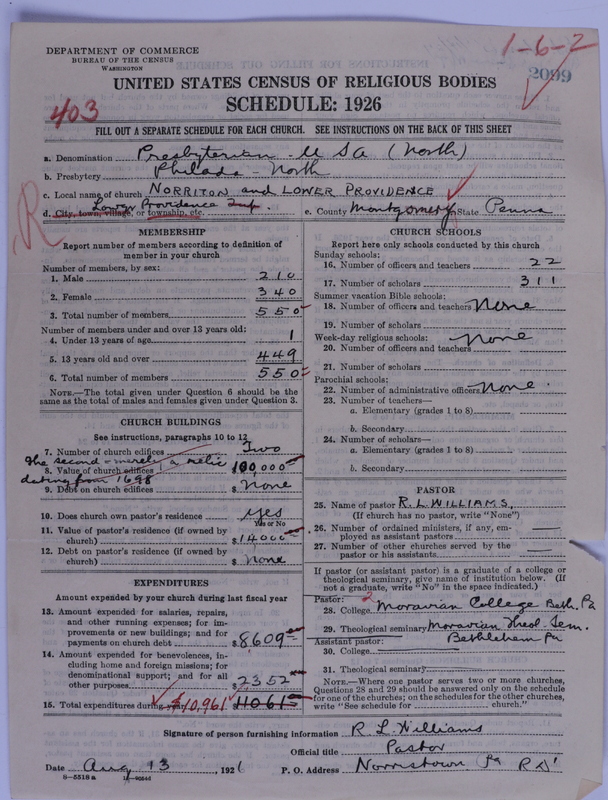 DEPARTMENT OF COMMERCE
BUREAU OF THE CENSUS
WASHINGTON
1-6-2
2099
UNITED STATES CENSUS OF RELIGIOUS BODIES
SCHEDULE: 1926
403
FILL OUT A SEPARATE SCHEDULE FOR EACH CHURCH. SEE INSTRUCTIONS ON THE BACK OF THIS SHEET
a. Denomination Presbyterian - U S A (North)
b. Presbytery Philada - North
c. Local name of church NORRITON and LOWER PROVIDENCE
Lower Providence Twp.
d. City, town, village, or township, etc. e. County Montgomery State Penna
R
MEMBERSHIP
Report number of members according to definition of member in your church
Number of members, by sex:
1. Male 210
2. Female 340
3. Total number of members 550
Number of members under and over 13 years old:
4. Under 13 years of age 1
5. 13 years old and over 449
6. Total number of members 550
NOTE.—The total given under Question 6 should be the same as the total of males and females given under Question 3.
CHURCH BUILDINGS
See instructions, paragraphs 10 to 12
7. Number of church edifices Two
the second - merely a relic
8. Value of church edifices $ 100,000
dating from 1698
9. Debt on church edifices $ None
10. Does church own pastor's residence yes
Yes or No
11. Value of pastor's residence (if owned by church) $ 14000
12. Debt on pastor's residence (if owned by church) $ None
EXPENDITURES
Amount expended by your church during last fiscal year
13. Amount expended for salaries, repairs, and other running expenses; for improvements or new buildings; and for payments on church debt $ 8609
14. Amount expended for benevolences, including home and foreign missions; for denominational support; and for all other purposes $ 2352
15. Total expenditures during year $10,961 $ 11061
CHURCH SCHOOLS
Report here only schools conducted by this church
Sunday schools:
16. Number of officers and teachers 22
17. Number of scholars 311
Summer vacation Bible schools:
18. Number of officers and teachers None
19. Number of scholars
Week-day religious schools: None
20. Number of officers and teachers
21. Number of scholars
Parochial schools:
22. Number of administrative officers None.
23. Number of teachers—
a. Elementary (grades 1 to 8)
b. Secondary
24. Number of scholars—
a. Elementary (grades 1 to 8)
b. Secondary
PASTOR
25. Name of pastor R. L. WILLIAMS,
(If church has no pastor, write "None")
26. Number of ordained ministers, if any, employed as assistant pastors
27. Number of other churches served by the pastor or his assistants
If pastor (or assistant pastor) is a graduate of a college or theological seminary, give name of institution below. (If not a graduate, write "No" in the space indicated.)
Pastor: 2
28. College Moravian College Beth. Pa
29. Theological seminary Moravian Theol Sem.
Assistant pastor: Bethlehem Pa
30. College
31. Theological seminary
NOTE.—Where one pastor serves two or more churches, Questions 28 and 29 should be answered only on the schedule for one of the churches; on the schedules for the other churches, write "See schedule for church."
Signature of person furnishing information R L Williams
Official title Pastor
Date Aug 13, 1926 P. O. Address Norristown Pa R D 1
8-5518 a